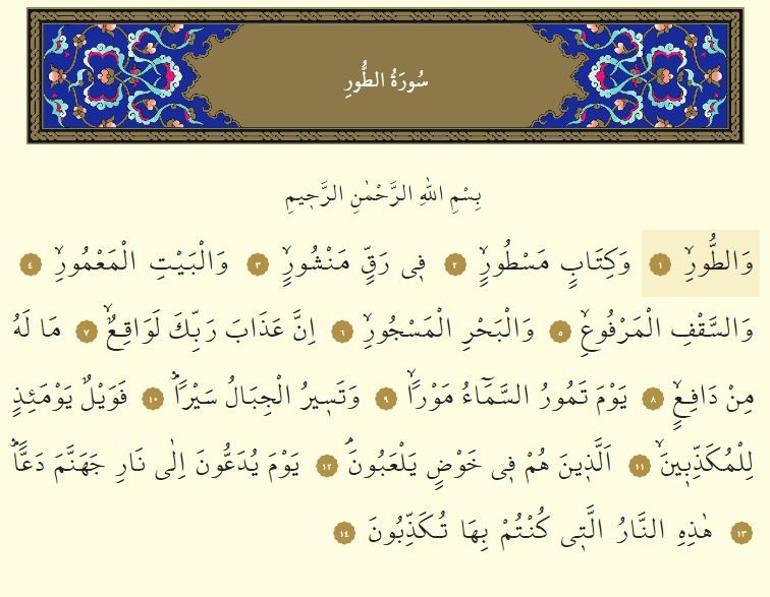 سُورَةُ الطُّورِ
بِسْمِ اللهِ الرَّحْمٰنِ الرَّحٖيمِ
وَالطُّورِۙ ١ وَكِتَابٍ مَسْطُورٍۙ ٢ فٖى رَقٍّ مَنْشُورٍۙ ٣ وَالْبَيْتِ الْمَعْمُورِۙ ٤
وَالسَّقْفِ الْمَرْفُوعِۙ ٥ وَالْبَحْرِ الْمَسْجُورِۙ ٦ اِنَّ عَذَابَ رَبِّكَ لَوَاقِعٌۙ ٧ مَا لَهُ
مِنْ دَافِعٍۙ ٨ يَوْمَ تَمُورُ السَّمَٓاءُ مَوْرًاۙ ٩ وَتَسٖيرُ الْجِبَالُ سَيْرًاؕ ١٠ فَوَيْلٌ يَوْمَئِذٍ
لِلْمُكَذِّبٖينَۙ ١١ اَلَّذٖينَ هُمْ فٖى خَوْضٍ يَلْعَبُونَۘ ١٢ يَوْمَ يُدَعُّونَ اِلٰى نَارِ جَهَنَّمَ دَعًّاؕ
١٣ هٰذِهِ النَّارُ الَّتٖى كُنْتُمْ بِهَا تُكَذِّبُونَ ١٤